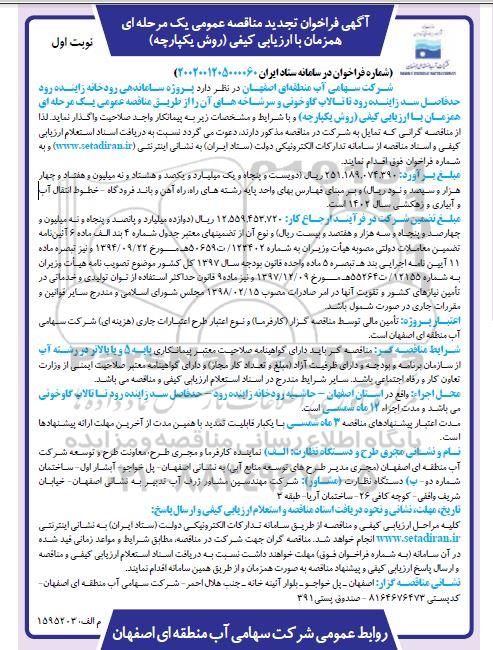 آگهی فراخوان تجدید مناقصه عمومی یک مرحله ای
همزمان با ارزیابی کیفی (روش یکپارچه)
نوبت اول
(شماره فراخوان در سامانه ستاد ایران 2002001205000060)
شرکت سهامی آب منطقه‌ای اصفهان در نظر دارد پروژه ساماندهی رودخانه زاینده رود
حدفاصل سد زاینده رود تا تالاب گاوخونی و سرشاخه های آن را از طریق مناقصه عمومی یک مرحله ای
همزمان با ارزیابی کیفی (روش یکپارچه) و با شرایط و مشخصات زیر به پیمانکار واجد صلاحیت واگذار نماید. لذا
از مناقصه گرانی که تمایل به شرکت در مناقصه مذکور دارند، دعوت می گردد نسبت به دریافت اسناد استعلام ارزیابی
کیفی و اسناد مناقصه از سامانه تدارکات الکترونیکی دولت (ستاد ایران) به نشانی اینترنتی (www.setadiran.ir) و به
شماره فراخوان فوق اقدام نمایند.
مبلغ برآورد: 251.189.074.390 ریال (دویست و پنجاه و یک میلیارد و یکصد و هشتاد و نه میلیون و هفتاد و چهار
هزار و سیصد و نود ریال) و بر مبنای فهارس بهای واحد پایه رشته های راه، راه آهن و باند فرودگاه - خطوط انتقال آب
و آبیاری و زهکشی سال 1402 است.
مبلغ تضمین شرکت در فرآیند ارجاع کار: 12.559.453.720 ریال (دوازده میلیارد و پانصد و پنجاه و نه میلیون و
چهارصد و پنجاه و سه هزار و هفتصد و بیست ریال) و نوع آن از تضمینهای معتبر جدول شماره 4 بند الف ماده 6 آئین‌نامه
تضمین معاملات دولتی مصوبه هیأت وزیران به شماره 123402/ت50659هـ مورخ 1394/09/22 و نیز تبصره ماده
11 آیین نامه اجرایی بند هـ تبصره 5 ماده واحده قانون بودجه سال 1397 کل کشور موضوع تصویب نامه هیأت وزیران
به شماره 12155/ت55264هـ مورخ 1397/12/09 و نیز ماده 9 قانون حداکثر استفاده از توان تولیدی و خدماتی در
تأمین نیازهای کشور و تقویت آنها در امر صادرات مصوب 1398/02/15 مجلس شورای اسلامی و مندرج سایر قوانین و
مقررات جاری در صورت شمول باشد.
اعتبار پروژه: تأمین مالی توسط مناقصه گزار (کارفرما) و نوع اعتبار طرح اعتبارات جاری (هزینه ای) شرکت سهامی
آب منطقه ای اصفهان است.
شرایط مناقصه گر: مناقصه گر باید دارای گواهینامه صلاحیت معتبر پیمانکاری پایه 5 و یا بالاتر در رسته آب
از سازمان برنامه و بودجه و دارای ظرفیت آزاد (مبلغ و تعداد کار مجاز) و دارای گواهینامه صلاحیت ایمنی از وزارت
تعاون کار و رفاه اجتماعی باشد. سایر شرایط مندرج در اسناد استعلام ارزیابی کیفی و مناقصه می باشد.
محل اجراء: واقع در استان اصفهان - حاشیه رودخانه زاینده رود - حدفاصل سد زاینده رود تا تالاب گاوخونی
می باشد و مدت اجراء 12 ماه شمسی است.
مدت اعتبار پیشنهادهای مناقصه 3 ماه شمسی با یکبار قابلیت تمدید با همین مدت از آخرین مهلت ارائه پیشنهادها
است.
نام و نشانی مجری طرح و دستگاه نظارت: الف) نماینده کارفرما و مجری طرح، معاونت طرح و توسعه شرکت
آب منطقه‌ای اصفهان (مجری مدیر طرح های توسعه منابع آبی) به نشانی اصفهان- پل خواجو- آبشار اول- ساختمان
شماره دو - ب) دستگاه نظارت (مشاور): شرکت مهندسین مشاور ژرف آب تدبیر به نشانی اصفهان- خیابان
شریف واقفی- کوچه کافی 26- ساختمان آریا- طبقه 3
تاریخ، مهلت، نشانی و نحوه دریافت اسناد مناقصه و استعلام ارزیابی کیفی و ارسال پاسخ:
کلیه مراحل ارزیابی کیفی و مناقصه از طریق سامانه تدارکات الکترونیکی دولت (ستاد ایران) به نشانی اینترنتی
www.setadiran.ir انجام خواهد شد. مناقصه گران جهت شرکت در مناقصه، مطابق شرایط و مواعد زمانی قید شده
در آن سامانه (به شماره فراخوان فوق) مهلت خواهند داشت نسبت به دریافت اسناد استعلام ارزیابی کیفی و مناقصه
و ارسال پاسخ ارزیابی کیفی و پیشنهاد مناقصه به صورت همزمان و از طریق همین سامانه اقدام نمایند.
نشانی مناقصه گزار: اصفهان - پل خواجو - بلوار آئینه خانه - جنب هلال احمر- شرکت سهامی آب منطقه ای اصفهان-
کدپستی 8164676473 - صندوق پستی 391
م الف: 1595203
روابط عمومی شرکت سهامی آب منطقه ای اصفهان